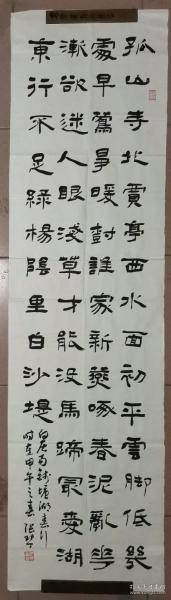 孤山寺北賈亭西水面初平雲脚低幾
處早鶯爭暖樹誰家新燕啄春泥亂花
漸欲迷人眼淺草才能没馬蹄最愛湖
東行不足綠楊陰里白沙堤
白居易錢塘湖春行
時在甲午之春張